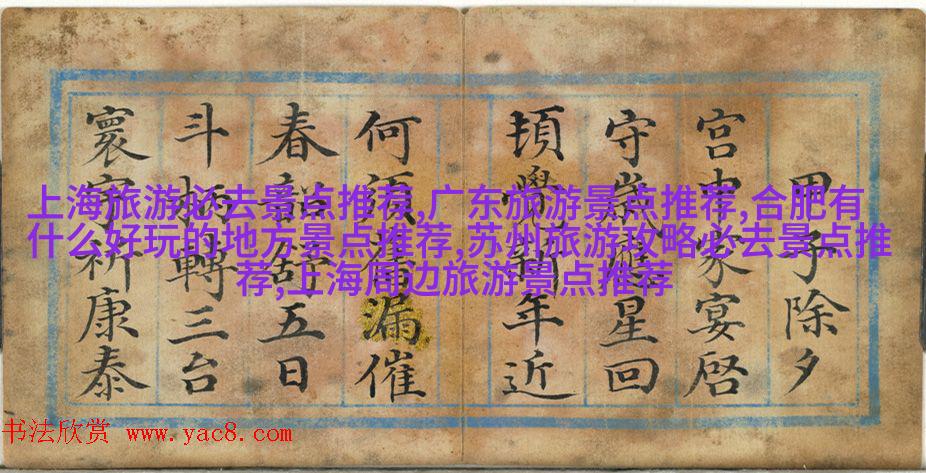 上海旅游必去景点推荐,广东旅游景点推荐,合肥有
什么好玩的地方景点推荐,苏州旅游攻略必去景点推
荐,上海周边旅游景点推荐
甲子除夕
宮中家宴啓
守歲星回
覺年近
何須漏催
春舒五日
斗柄轉三台
寰宇祈康泰
书法欣赏 www.yac8.com